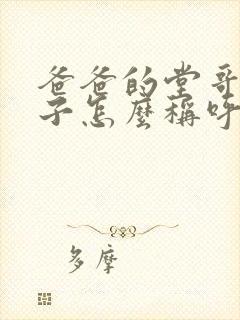 爸爸的堂哥
子怎麼稱呼
多摩